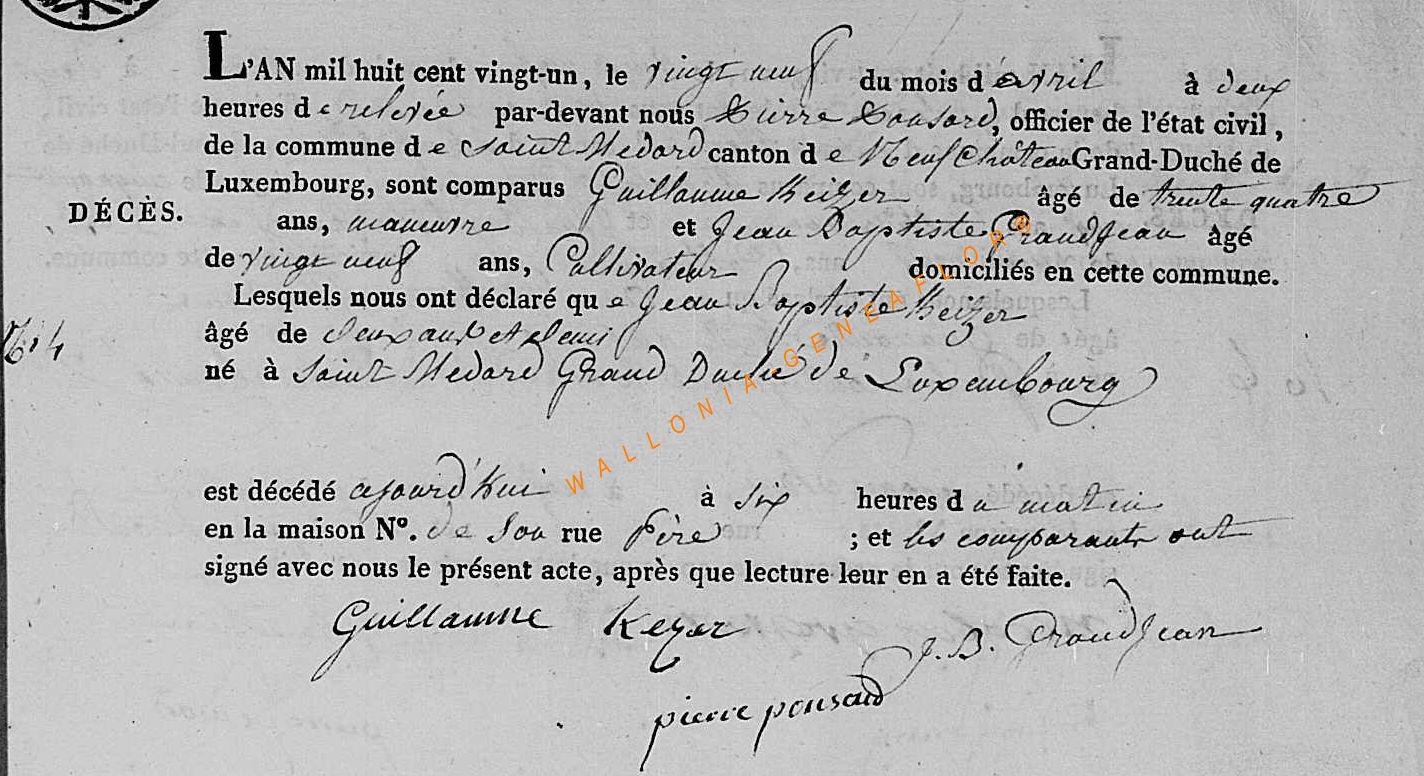 L'AN mil huit cent vingt-un, le vingt neuf du mois d'avril à deux
heures de relevée par-devant nous Pierre Ponsard, officier de l'état civil,
de la commune de Saint Medard canton de Neufchâteau Grand-Duché de
Luxembourg, sont comparus Guillaume Keizer âgé de trente quatre
DÉCÈS.
ans, manuvre et Jean Baptiste Grandjean âgé
de vingt neuf ans, Cultivateur domiciliés en cette commune.
Lesquels nous ont déclaré que Jean Baptiste Keizer
N.° 4
âgé de deux ans et demi
né à Saint Medard Grand Duché de Luxembourg
est décédé ajourd'hui à six heures du matin
en la maison N°. de son rue Père ; et les comparants ont
signé avec nous le présent acte, après que lecture leur en a été faite.
Guillaume Keyser
J. B. Grandjean
pierre ponsard
WALLONIA.GENEAFLOR®